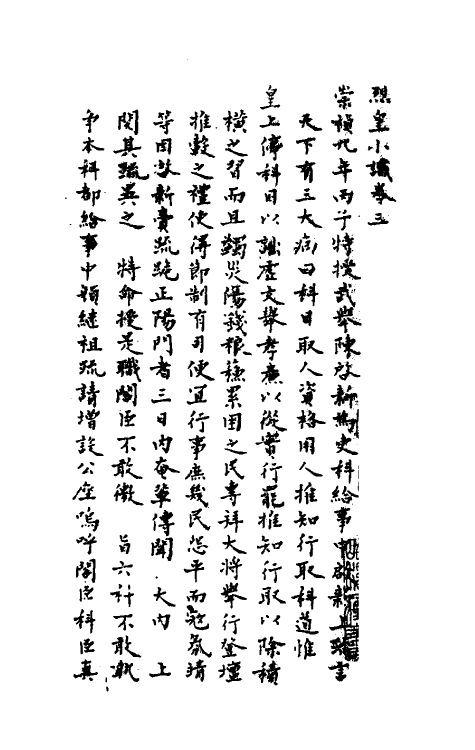 烈皇小識卷三
崇禎九年丙子特授武舉陳啟新為吏科給事中啟新上疏言
天下有三大病曰科目取人資格用人推知行取科道惟
皇上停科目以黜虛文舉孝廉以從實行罷推知行取以除積
橫之習而且蠲災傷錢糧蘇累困之民專拜大將舉行登壇
推轂之禮使得節制有司便宜行事庶幾民怨平而寇氛靖
等因啟新賫疏跪正陽門者三日內奄輩傳聞　大內　上
閱其疏異之　特命授是職閣臣不敢徼　旨六科不敢執
爭本科都給事中顏繼祖疏請增設公座嗚呼閣臣科臣真